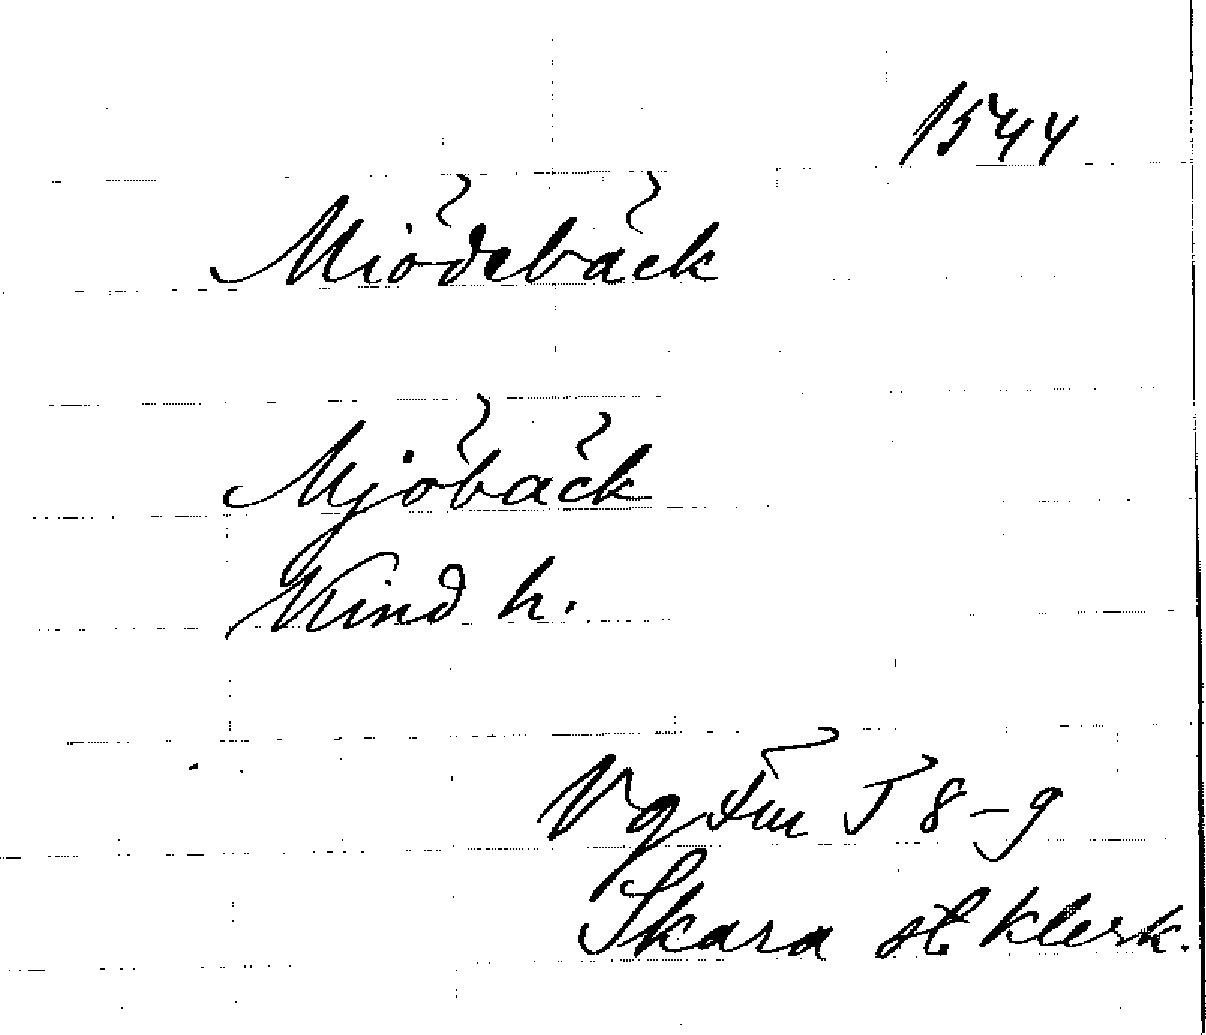 1544
Miödebäck
Mjöbäck
Kind h.
Vg Fm T 8-9
Skara st klerk.